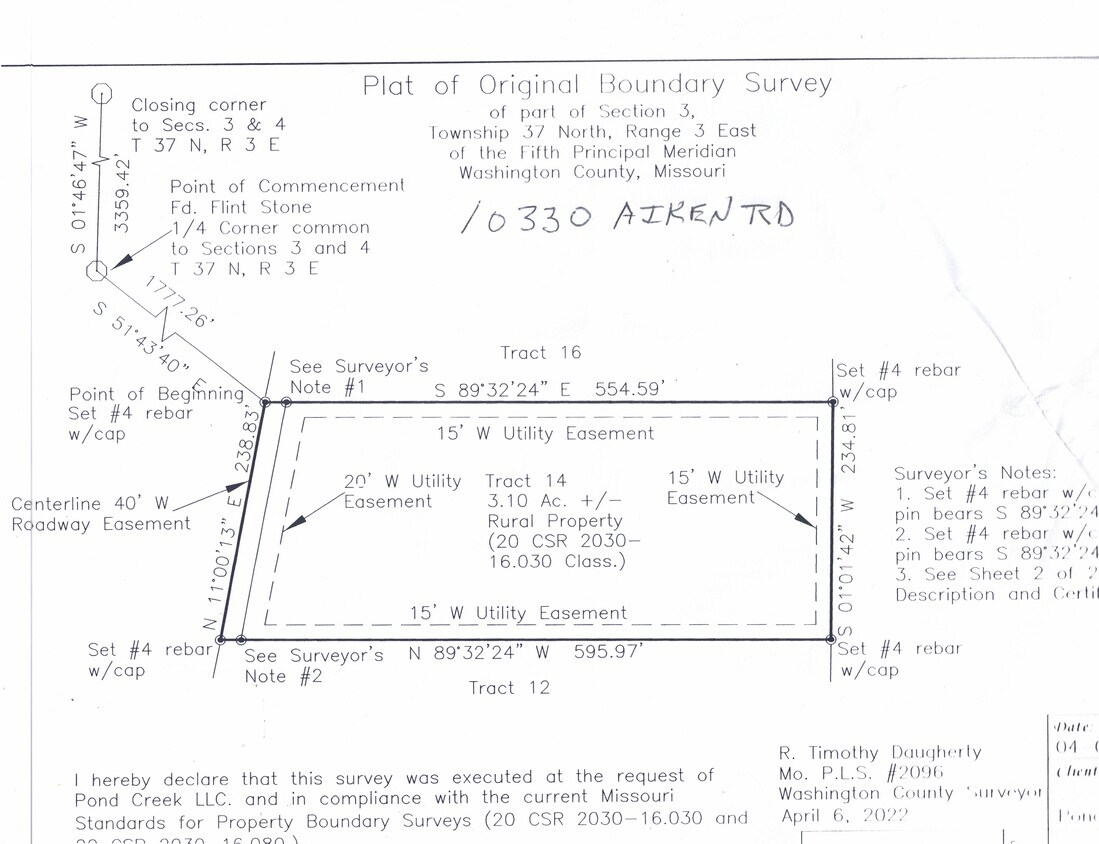 Plat of Original Boundary Survey
of part of Section 3,
Township 37 North, Range 3 East
of the Fifth Principal Meridian
Washington County, Missouri
10330 AIKEN RD
Closing corner
to Secs. 3 & 4
T 37 N, R 3 E
S 01°46'47" W
3359.42'
Point of Commencement
Fd. Flint Stone
1/4 Corner common
to Sections 3 and 4
T 37 N, R 3 E
1777.26'
S 51°43'40" E
Tract 16
See Surveyor's
Note #1
S 89°32'24" E 554.59'
Set #4 rebar
w/cap
Point of Beginning
Set #4 rebar
w/cap
15' W Utility Easement
N 11°00'13" E 238.83'
Centerline 40' W
Roadway Easement
20' W Utility
Easement
Tract 14
3.10 Ac. +/–
Rural Property
(20 CSR 2030–
16.030 Class.)
15' W Utility
Easement
S 01°01'42" W 234.81'
Surveyor's Notes:
1. Set #4 rebar w/c
pin bears S 89°32'24
2. Set #4 rebar w/c
pin bears S 89°32'24
3. See Sheet 2 of 2
Description and Certif
15' W Utility Easement
Set #4 rebar
w/cap
See Surveyor's
Note #2
N 89°32'24" W 595.97'
Set #4 rebar
w/cap
Tract 12
I hereby declare that this survey was executed at the request of
Pond Creek LLC. and in compliance with the current Missouri
Standards for Property Boundary Surveys (20 CSR 2030–16.030 and
20 CSR 2030–16.080.)
R. Timothy Daugherty
Mo. P.L.S. #2096
Washington County Surveyor
April 6, 2022
Date:
04
Client